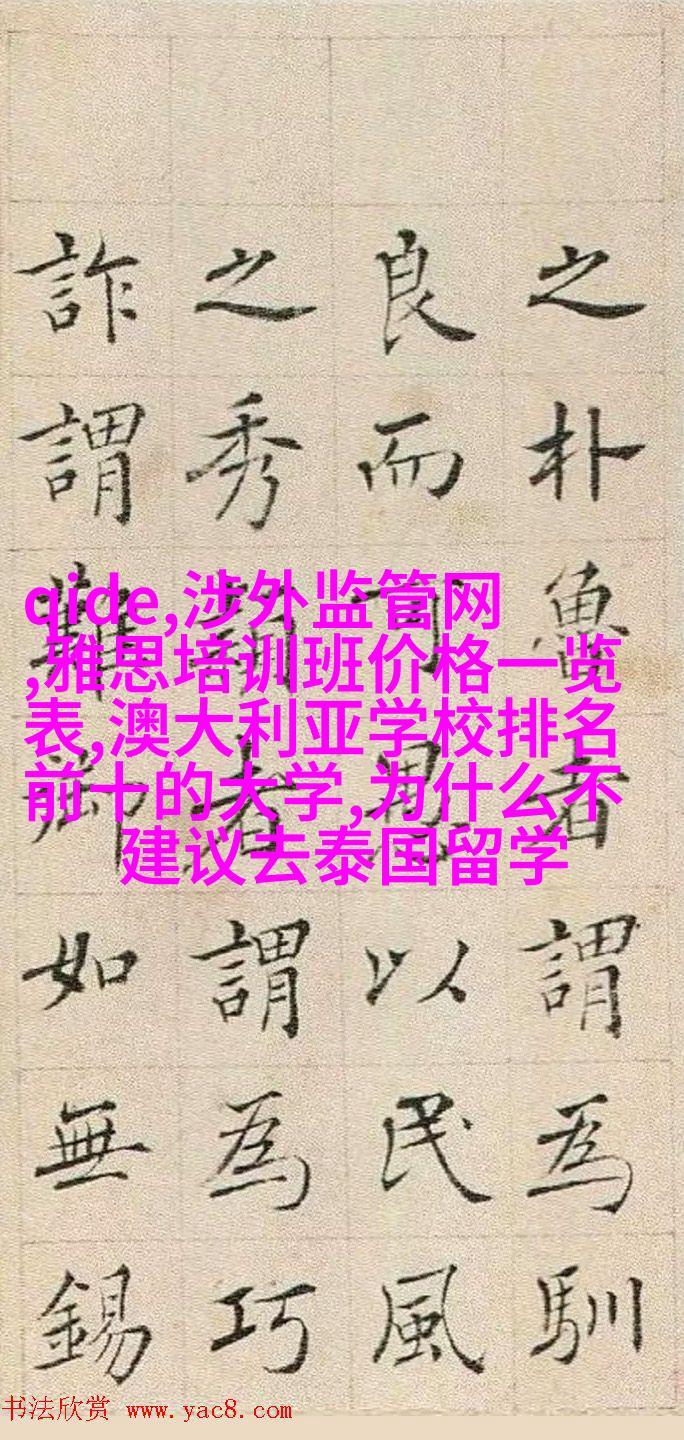 之朴魯者謂為馴
良而以民風
之秀者謂為巧
詐謂難御如無錫
qide,涉外监管网
,雅思培训班价格一览
表,澳大利亚学校排名
前十的大学,为什么不
建议去泰国留学
书法欣赏 www.yac8.com